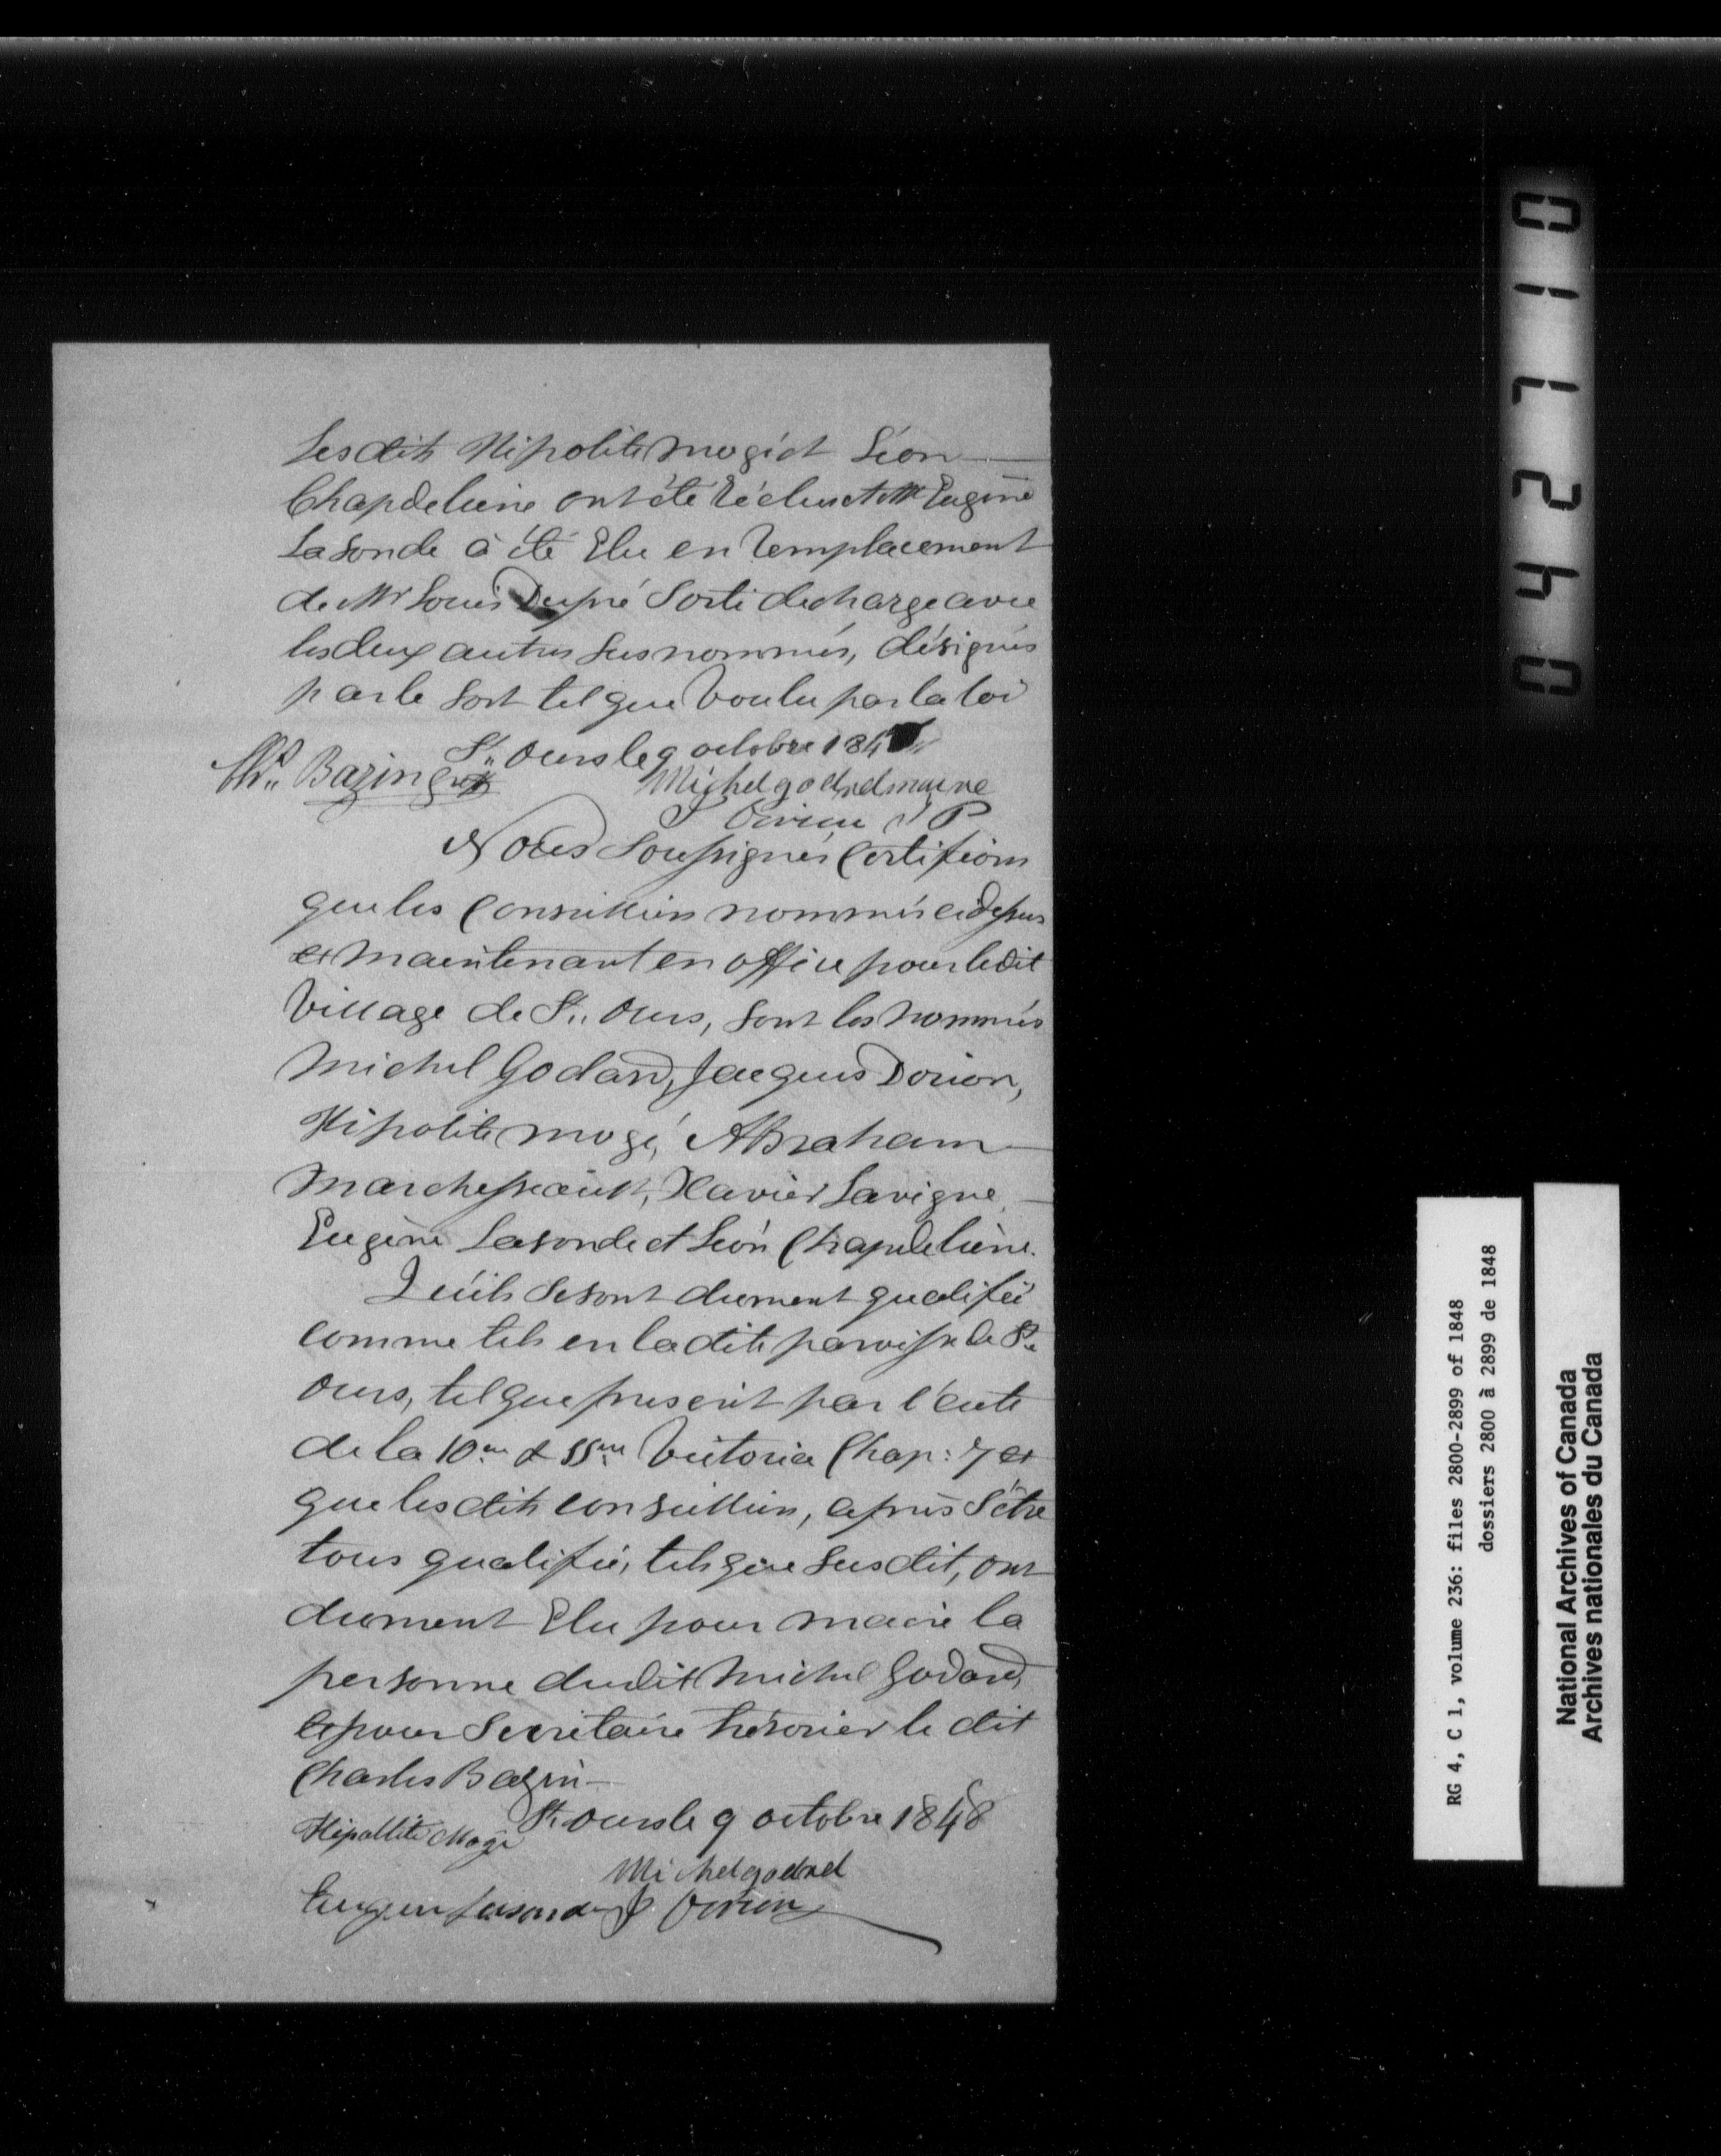 Les dits Hipolite mogé et Léon
Chapdeleine ont été Réelus et Mr Eugène
Lasonde à été Elu en Remplacement
de Mr Louis Dupré Sorti de charge avec
les deux autres susnommés, désignés
par le sort tel que Voulu par la loi
St. Ours le 9 octobre 1848
Chs. Bazin
Michel godard maire
J Dorion J P
Nous Soussignés Certifions
que les Conseillers nommés ci dessus
et maintenant en office pour le dit
Village de St. Ours, sont les nommés
Michel Godard, Jacques Dorion,
Hipolite mogé, Abraham
Marchesseault, Xavier Lavigne,
Eugène Lasonde et Léon Chapdeleine.
Qu'ils se sont dument qualifié
comme tels en la dite paroisse de St.
Ours, tel que prescrit par l'acte
de la 10me & 11me Victoria Chap: 7 et
que les dits conseillers, après s'être
tous qualifié, tels que susdit, ont
dument Elu pour maire la
personne du dit Michel Godard,
et pour Secrétaire trésorier le dit
Charles Bazin
St. Ours le 9 octobre 1848
Hipollite Mogé
Michel godard
Eugene Lasonde J Dorion
0177240
RG 4, C 1, volume 236: files 2800-2899 of 1848
dossiers 2800 à 2899 de 1848
National Archives of Canada
Archives nationales du Canada